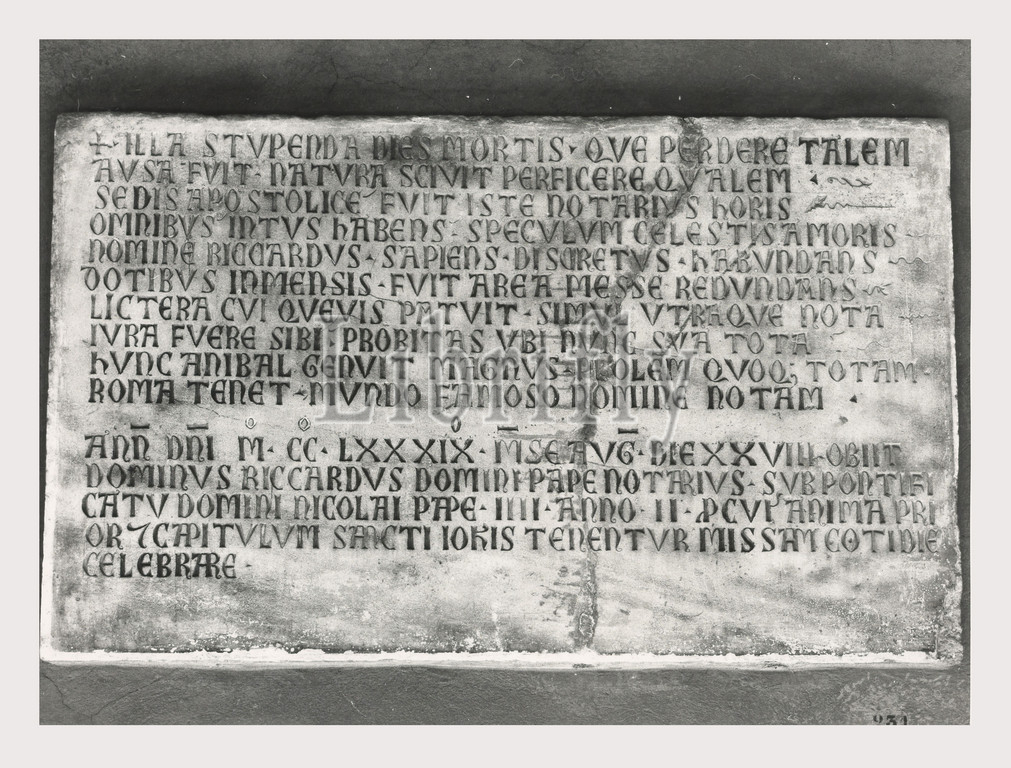 + ILLA STVPENDA DIES MORTIS · QVE PERDERE TALEM
AVSA FVIT · NATVRA SCIVIT PERFICERE QVALEM
SEDIS APOSTOLICE FVIT ISTE NOTARIVS HORIS
OMNIBVS INTVS HABENS · SPECVLVM CELESTIS AMORIS
NOMINE RICCARDVS · SAPIENS · DISCRETVS · HABVNDANS
DOTIBVS INMENSIS · FVIT AREA MESSE REDVNDANS
LICTERA CVI QVEVIS PATVIT · SIMVL VTRAQVE NOTA
IVRA FVERE SIBI · PROBITAS VBI NVNC SVA TOTA
HVNC ANIBAL GENVIT MAGNVS · PROLEM QVOQ; TOTAM ·
ROMA TENET · MVNDO FAMOSO NOMINE NOTAM
ANN̄ DN̄I M · CC · LXXXIX · M̄SE AVḠ · DIE XXVIII · OBIIT
DOMINVS RICCARDVS DOMINI PAPE NOTARIVS · SVB PONTIFI
CATV DOMINI NICOLAI PAPE · IIII · ANNO · II · ꝒCVI ANIMA PRI
OR ⁊ CAPITVLVM SANCTI IOHIS TENENTVR MISSAM COTIDIE
CELEBRARE ·
Librify
931